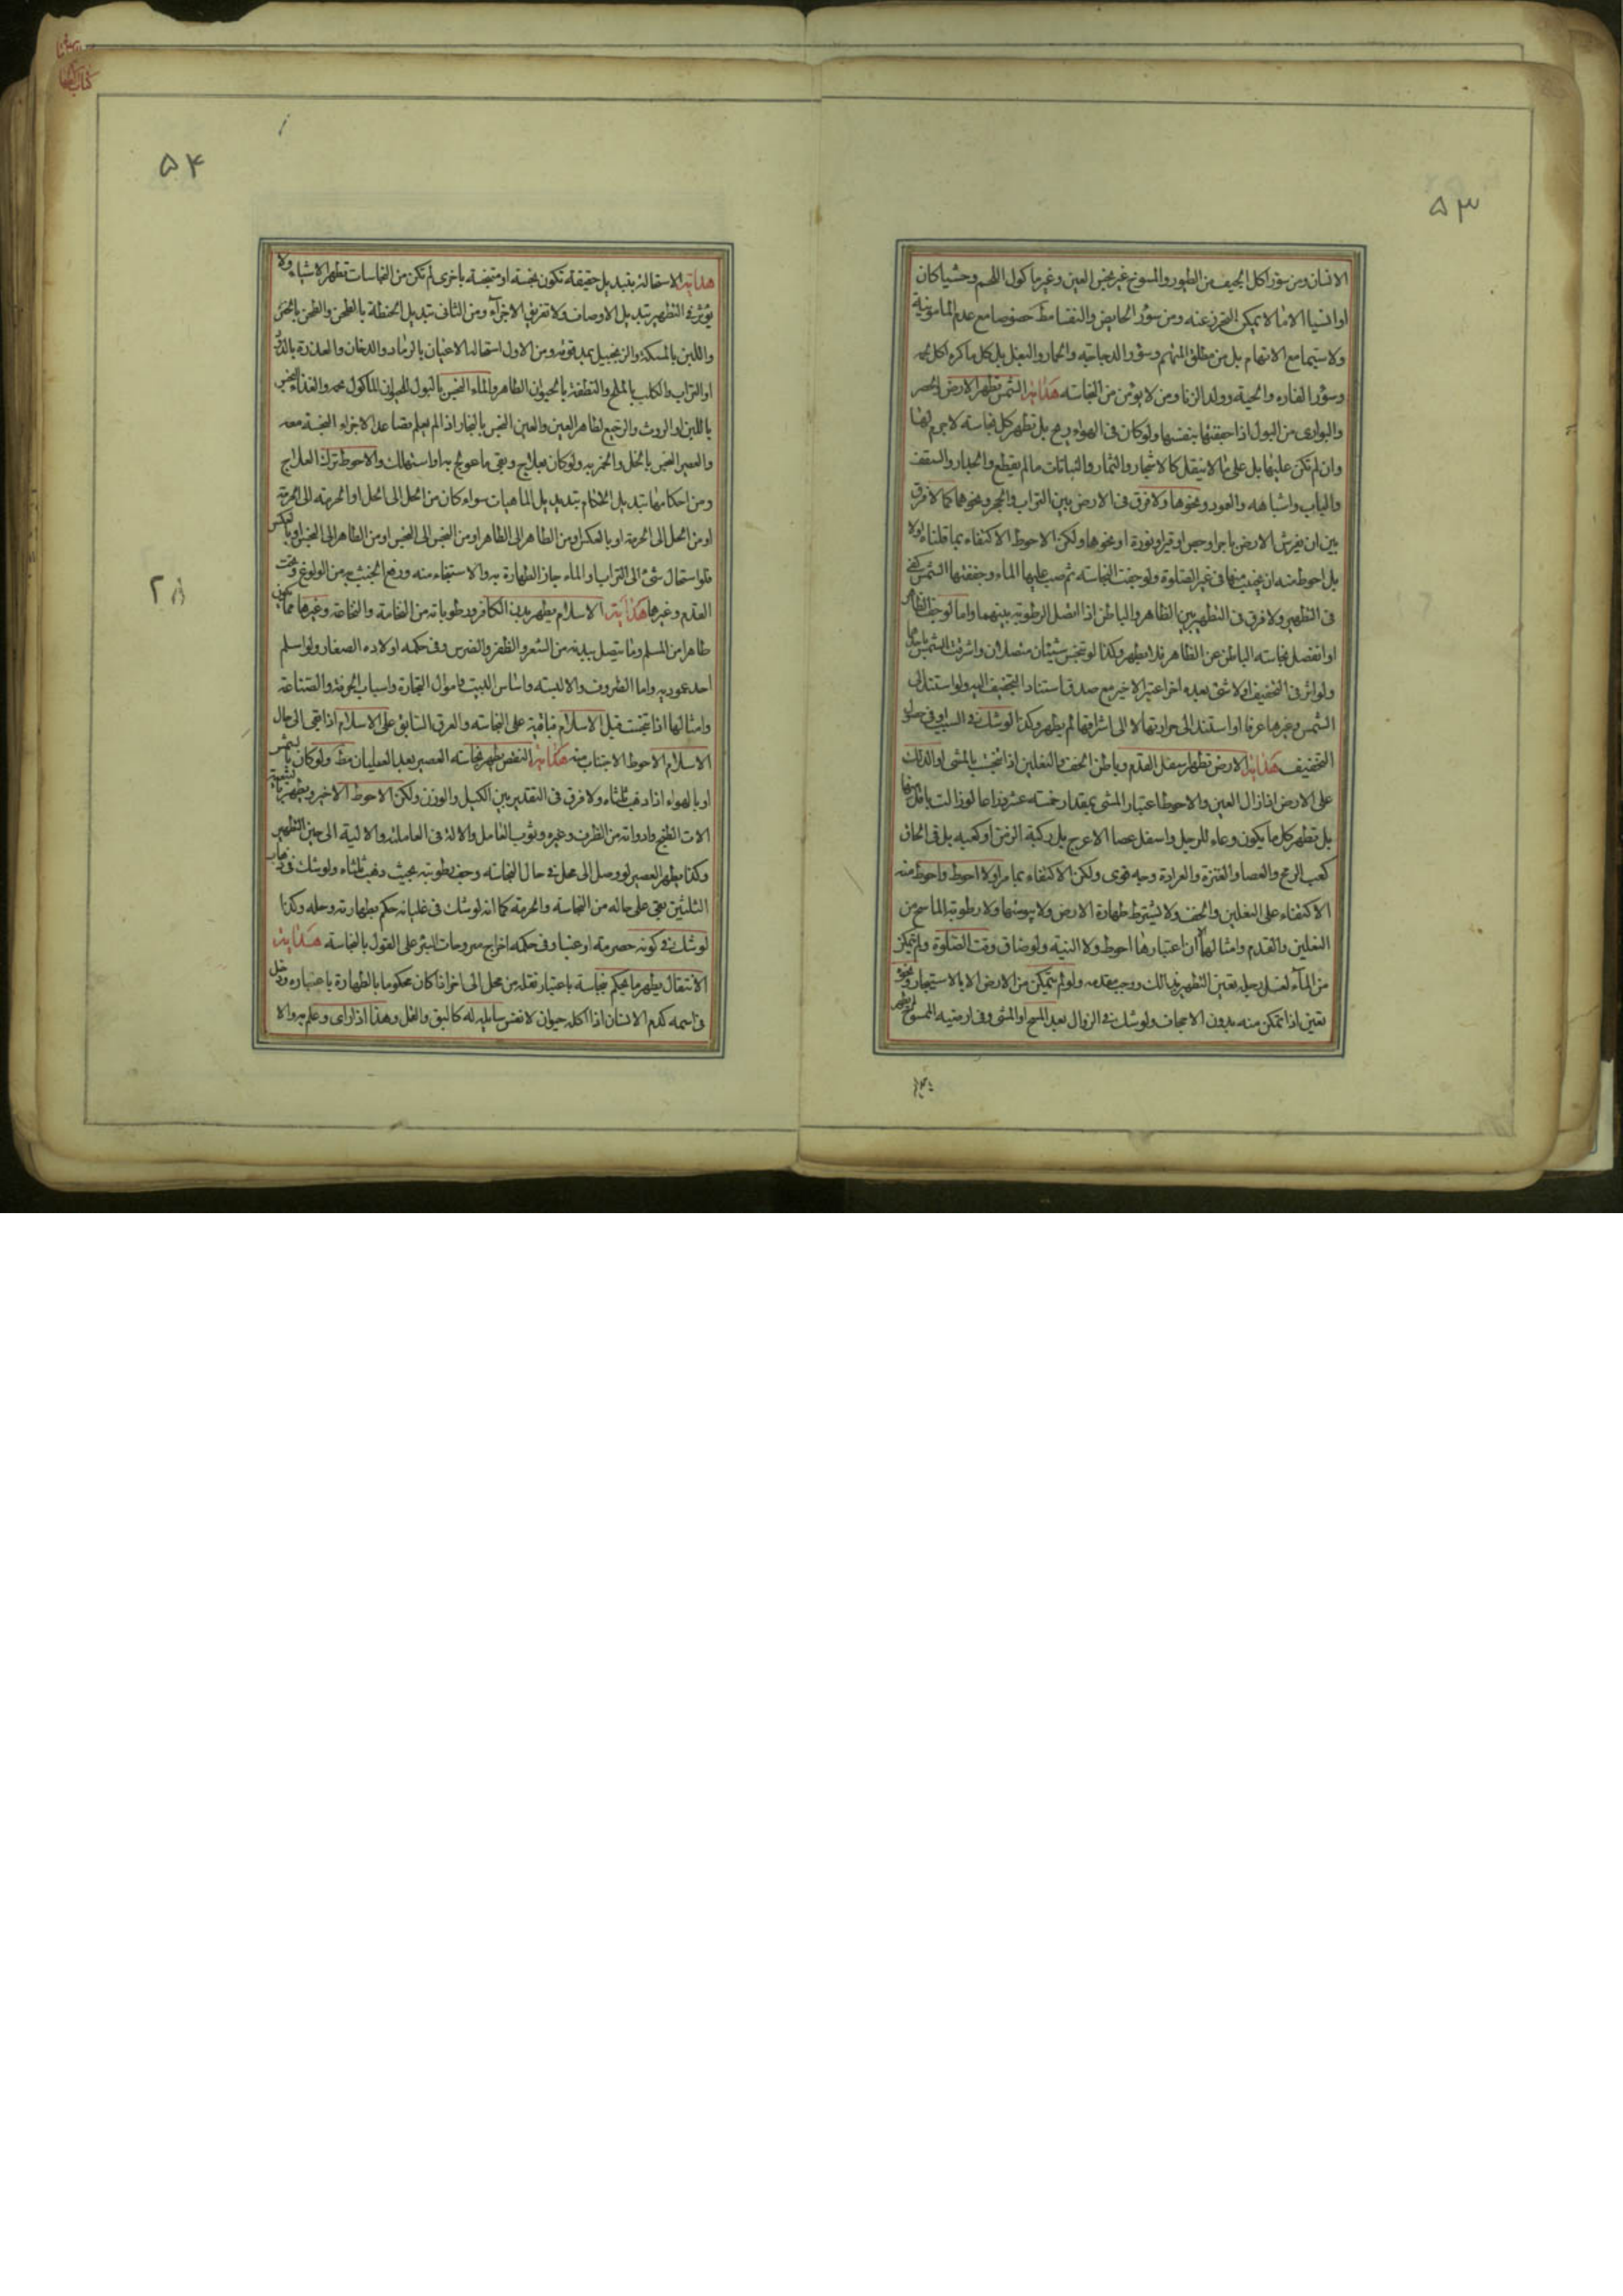 ۵۳
الانسان ومن سؤر اكل الجيف من الطيور والمسوخ غير نجس العين وغير ماكول اللحم وحشيا كان
او انسيا الا ما لا يمكن التحرز عنه ومن سؤر الحايض والنفسا مط خصوصا مع عدم المامونية
ولا سيما مع الاتهام بل من مطلق المتهم وسؤر الدجاجة والحمار والبغل بل كل ما كره اكل لحمه
وسؤر الفاره والحية وولد الزنا ومن لا يؤمن من النجاسة هداية الشمس تطهر الارض والحصر
والبوارى من البول اذا جففتها بنفسها ولو كان فى الهواء ريح بل تطهر كل نجاسة لا جرم لها
وان لم تكن عليها بل على ما لا ينقل كالاشجار والثمار والنباتات ما لم يقطع والجدار والسقف
والباب واشباهه والعود ونحوها ولا فرق فى الارض بين التراب والحجر ونحوهما كما لا فرق
بين ان يفرش الارض باجر او جص او قير او نورة او نحوها ولكن الاحوط الاكتفاء بما قلناه اولا
بل احوط منه ان يجتنب منها فى غير الصلوة ولو جفت النجاسة ثم صب عليها الماء وجففتها الشمس كفى
فى التطهير ولا فرق فى التطهير بين الظاهر والباطن اذا اتصل الرطوبة بينهما واما لو جف الظاهر
او انفصل نجاسة الباطن عن الظاهر فلا يطهر وكذا لو تنجس شيئان متصلان واشرقت الشمس على احدهما
ولو اثر فى التجفيف اولا شئ بعده اخر اعتبر الاخير مع صدق استناد التجفيف اليه ولو استند الى
الشمس وغيرها عرفا او استند الى حرارتها لا الى اشراقها لم يطهر وكذا لو شك فى السبب او فى حصول
التجفيف هداية الارض تطهر سفل القدم وباطن الخف والنعلين اذا تنجست بالمشى او الدلك
على الارض اذا زال العين والاحوط اعتبار المشى بمقدار خمسة عشر ذراعا لو زالت باقل منها
بل تطهر كل ما يكون وعاء للرجل واسفل عصا الاعرج بل ركبة الزمن او كعبه بل فى الحاق
كعب الرمح والعصا والعنزة والعرادة وجه قوى ولكن الاكتفاء بما مر اولا احوط واحوط منه
الاكتفاء على النعلين والخف ولا يشترط طهارة الارض ولا يبوستها ولا رطوبة الماسح من
النعلين والقدم وامثالها ان اعتبارها احوط ولا النية ولو ضاق وقت الصلوة ولم يتمكن
من الماء لغسل رجله يتعين التطهير بذلك ووجب مقدمه ولو لم يتمكن من الارض الا بالاستيجار ونحوه
يتعين اذا تمكن منه بدون الاجحاف ولو شك فى الزوال بعد المسح او المشى وفى ارضية الممسوح لم يطهر
۵۴
هداية الاستحالة بتبديل حقيقة تكون نجسة او متنجسة باخرى لم تكن من النجاسات تطهر الاشياء ولا
يؤثر فى التطهير تبديل الاوصاف ولا تفريق الاجزاء ومن الثانى تبديل الحنطة بالطحن والطحن بالخبز
واللبن بالمسكة والزنجبيل بمدقوقه ومن الاول استحالة الاعيان بالرماد والدخان والعذرة بالدود
او التراب والكلب بالملح والنطفة بالحيوان الطاهر والماء النجس بالبول للحيوان الماكول لحمه والغذاء النجس
باللبن او الروث والرجيع لطاهر العين والعين النجس بالبخار اذا لم يعلم تصاعد الاجزاء النجسة معه
والعصير النجس بالخل والخمر به ولو كان بعلاج وبقى ما عولج به او استهلك والاحوط ترك العلاج
ومن احكامها تبديل الاحكام بتبديل الماهيات سواء كان من الحل الى الحل او الحرمة الى الحرمة
او من الحل الى الحرمة او بالعكس او من الطاهر الى الطاهر او من النجس الى النجس او من الطاهر الى النجس او بالعكس
فلو استحال شئ الى التراب او الماء جاز الطهارة به والاستيفاء منه ورفع الخبث به من الولوغ وتحت
القدم وغيرها هداية الاسلام يطهر بدن الكافر ورطوباته من النخامة والنخاعة وغيرها مما يكون
طاهرا من المسلم وما يتصل ببدنه من الشعر والظفر والضرس وفى حكمه اولاده الصغار ولو اسلم
احد عموديه واما الظروف والالبسة واساس البيت واموال التجارة واسباب الحرفة والصناعة
وامثالها اذا تنجست قبل الاسلام فباقية على النجاسة والعرق السابق على الاسلام اذا بقى الى حال
الاسلام الاحوط الاجتناب منه هداية النقص يطهر نجاسة العصير بعد الغليان مط ولو كان بالشمس
او بالهواء اذا ذهب ثلثاه ولا فرق فى التقدير بين الكيل والوزن ولكن الاحوط الاخير ويطهر بتبعيته
الات الطبخ وادواته من الظرف وغيره وثوب العامل والالة فى العاملية والالية الى حين التطهير
وكذا يطهر العصير لو وصل الى محل فى حال النجاسة وجف رطوبته بحيث ذهب ثلثاه ولو شك فى ذهاب
الثلثين بقى على حاله من النجاسة والحرمة كما انه لو شك فى غليانه حكم بطهارته وحله وكذا
لو شك فى كونه حصرمة او عنبا وفى حكمه اخراج منزوحات البئر على القول بالنجاسة هداية
الانتقال يطهر ما يحكم بنجاسة باعتبار نقله من محل الى اخر اذا كان محكوما بالطهارة باعتباره ودخل
فى اسمه كدم الانسان اذا اكله حيوان لا نفس سايلة له كالبق والقمل وهذا اذا راى وعلم به والا